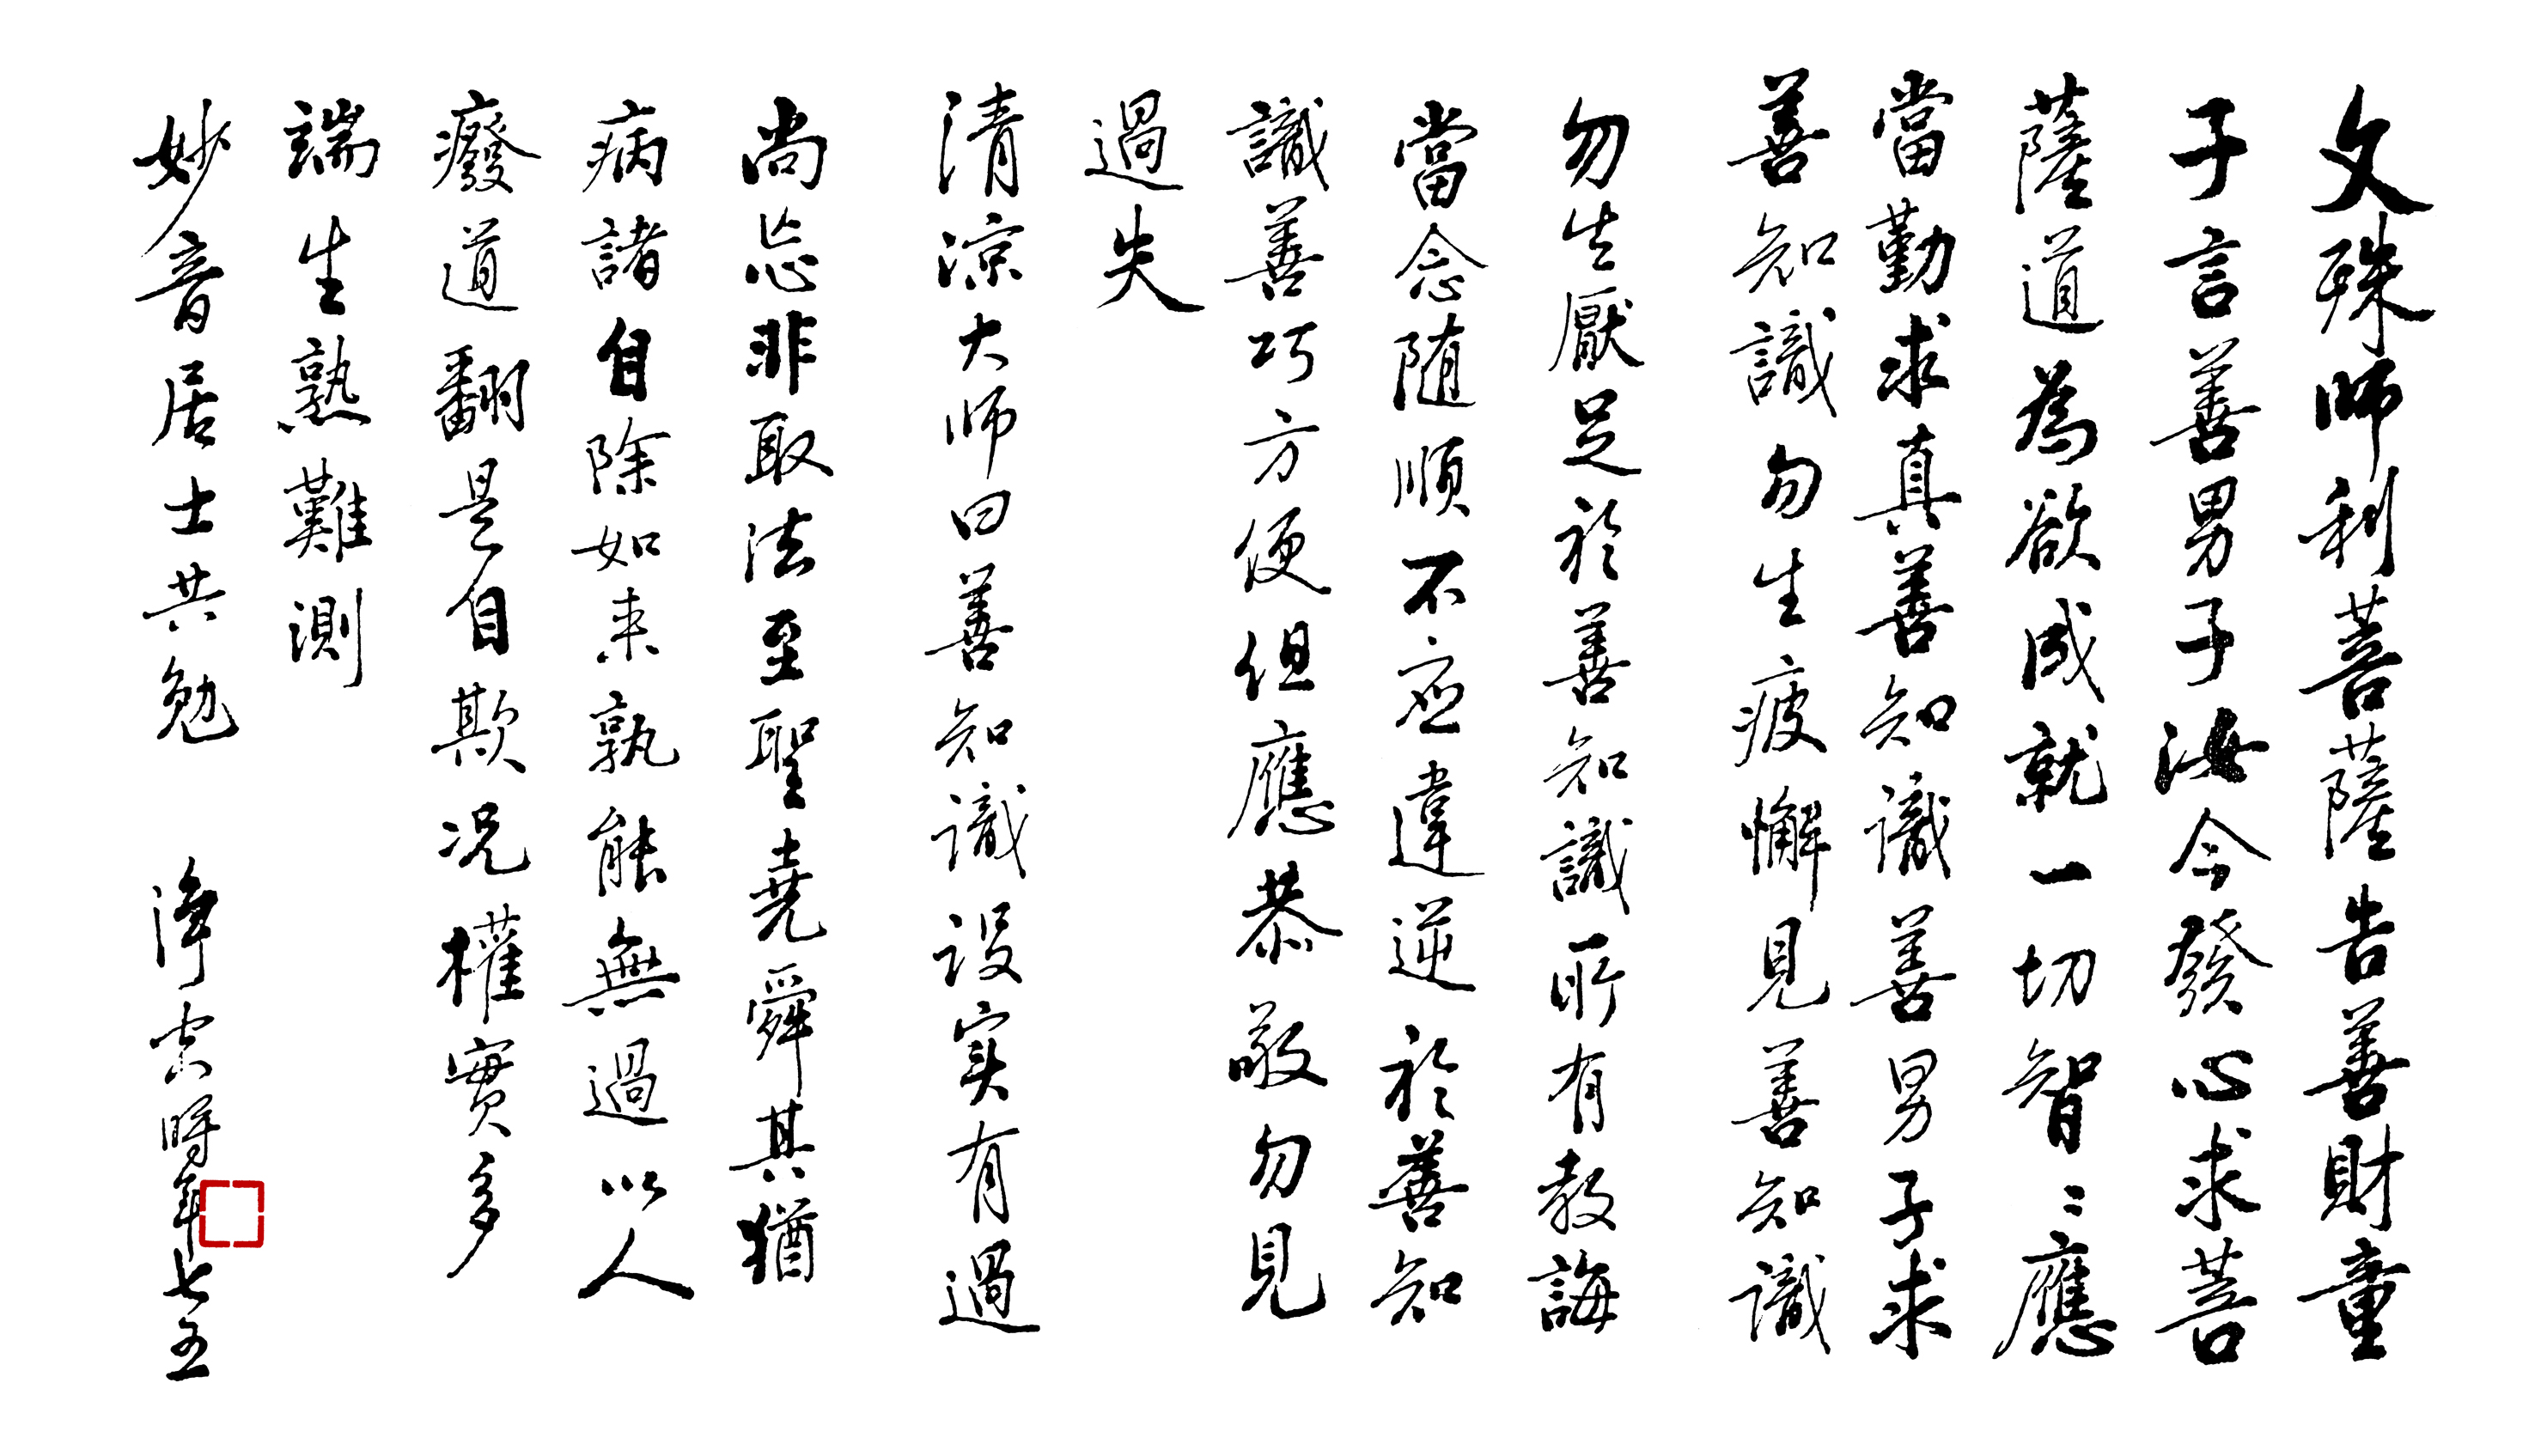 文殊师利菩薩告善財童
子言善男子汝今發心求菩
薩道為欲成就一切智〻應
當勤求真善知識善男子求
善知識勿生疲懈見善知識
勿生厭足於善知識所有教誨
當念随順不应違逆於善知
識善巧方便但應恭敬勿見
過失
清涼大师曰善知識设实有過
尚忘非取法至聖堯舜其猶
病諸自除如来孰能無過以人
癈道翻是自欺况權實多
端生熟難測
妙音居士共勉 淨空時年七五